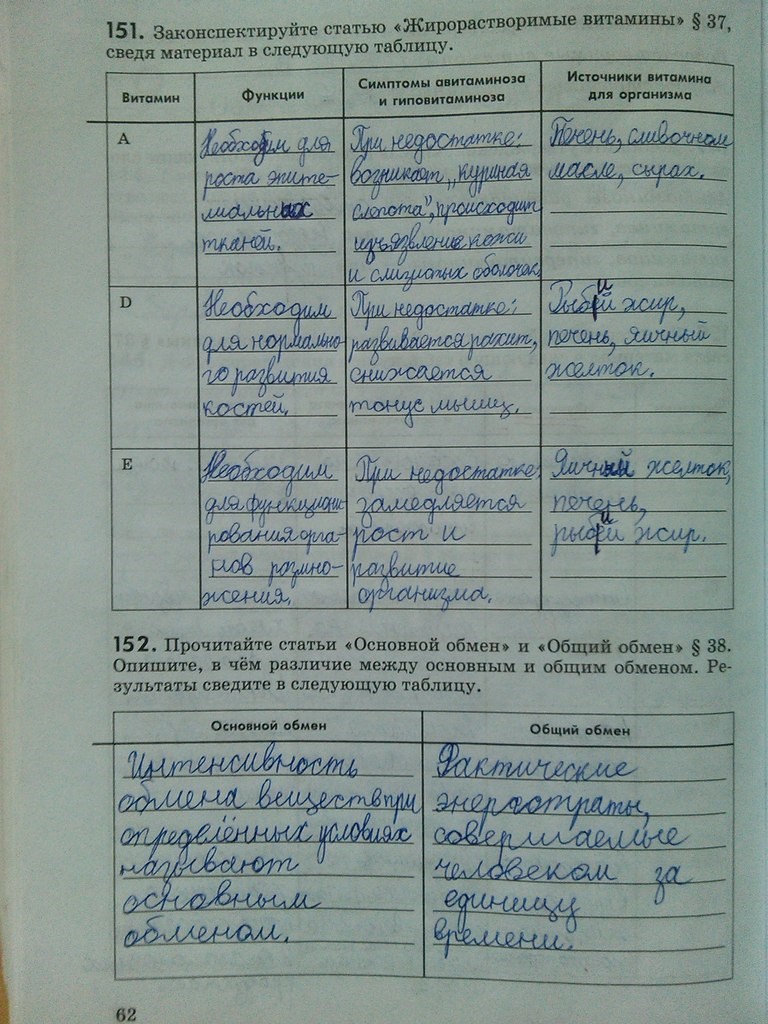 151. Законспектируйте статью «Жирорастворимые витамины» § 37,
сведя материал в следующую таблицу.
Витамин
Функции
Симптомы авитаминоза
и гиповитаминоза
Источники витамина
для организма
A
Необходим для
роста эпите-
лиальных
тканей.
При недостатке:
возникает „куриная
слепота", происходит
изъязвление кожи
и слизистых оболочек
Печень, сливочном
масле, сырах.
D
Необходим
для нормально-
го развития
костей.
При недостатке:
развивается рахит,
снижается
тонус мышц.
Рыбий жир,
печень, яичный
желток.
E
Необходим
для функциони-
рования орга-
нов размно-
жения.
При недостатке:
замедляется
рост и
развитие
организма.
Яичный желток,
печень,
рыбий жир.
152. Прочитайте статьи «Основной обмен» и «Общий обмен» § 38.
Опишите, в чём различие между основным и общим обменом. Ре-
зультаты сведите в следующую таблицу.
Основной обмен
Общий обмен
Интенсивность
обмена веществ при
определённых условиях
называют
основным
обменом.
Фактические
энергозатраты,
совершаемые
человеком за
единицу
времени.
62